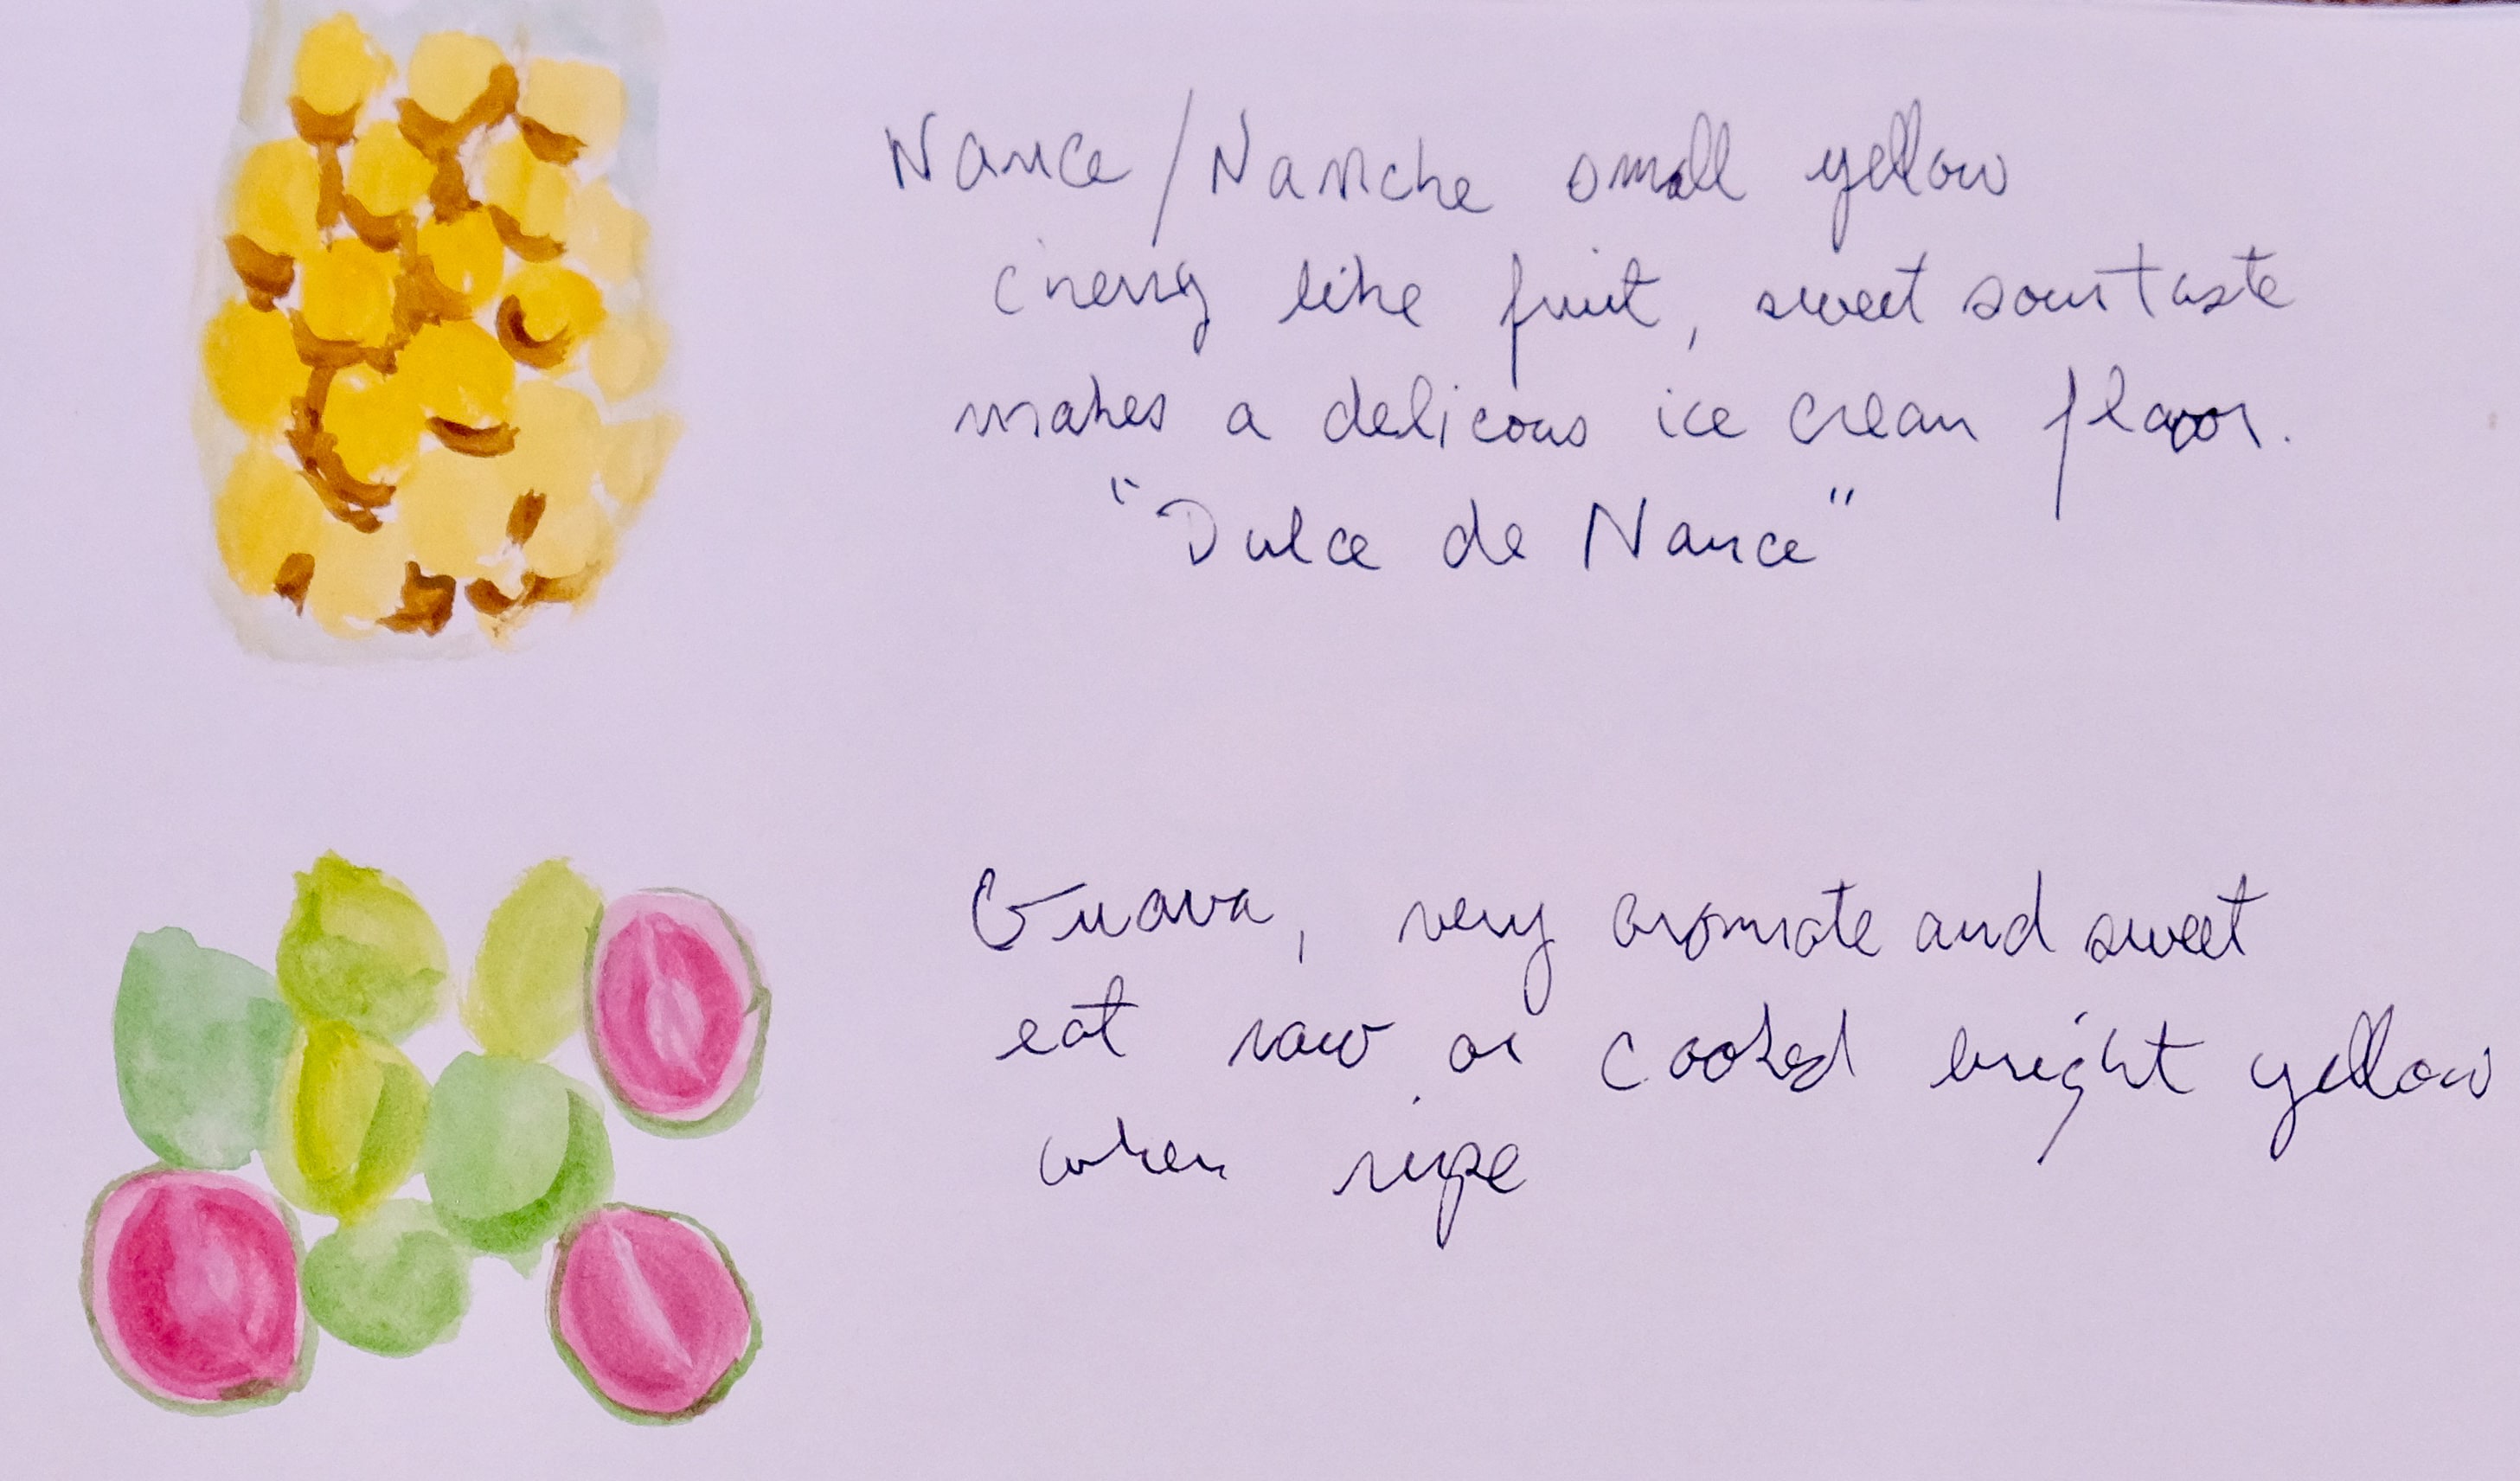 Nance / Nanche small yellow
cherry like fruit, sweet sour taste
makes a delicous ice cream flavor.
"Dulce de Nance"
Guava, very aromate and sweet
eat raw or cooked bright yellow
when ripe